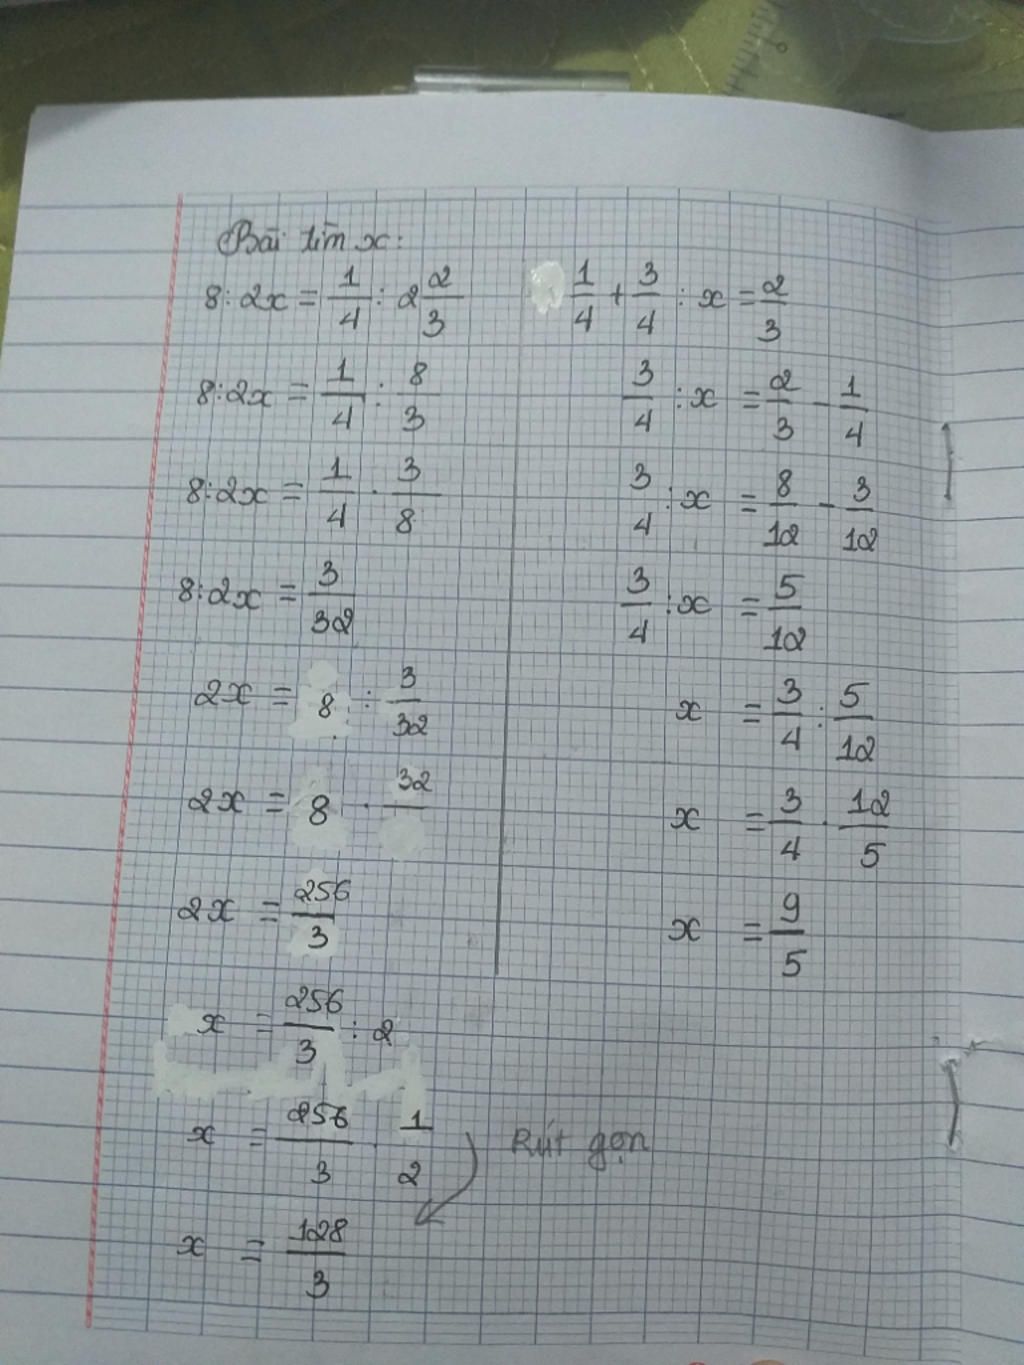 Bài tìm x:
8 : 2x = 1/4 : 2 2/3
8 : 2x = 1/4 : 8/3
8 : 2x = 1/4 . 3/8
8 : 2x = 3/32
2x = 8 : 3/32
2x = 8 . 32/
2x = 256/3
x = 256/3 : 2
x = 256/3 . 1/2
Rút gọn
x = 128/3
1/4 + 3/4 : x = 2/3
3/4 : x = 2/3 - 1/4
3/4 : x = 8/12 - 3/12
3/4 : x = 5/12
x = 3/4 : 5/12
x = 3/4 . 12/5
x = 9/5